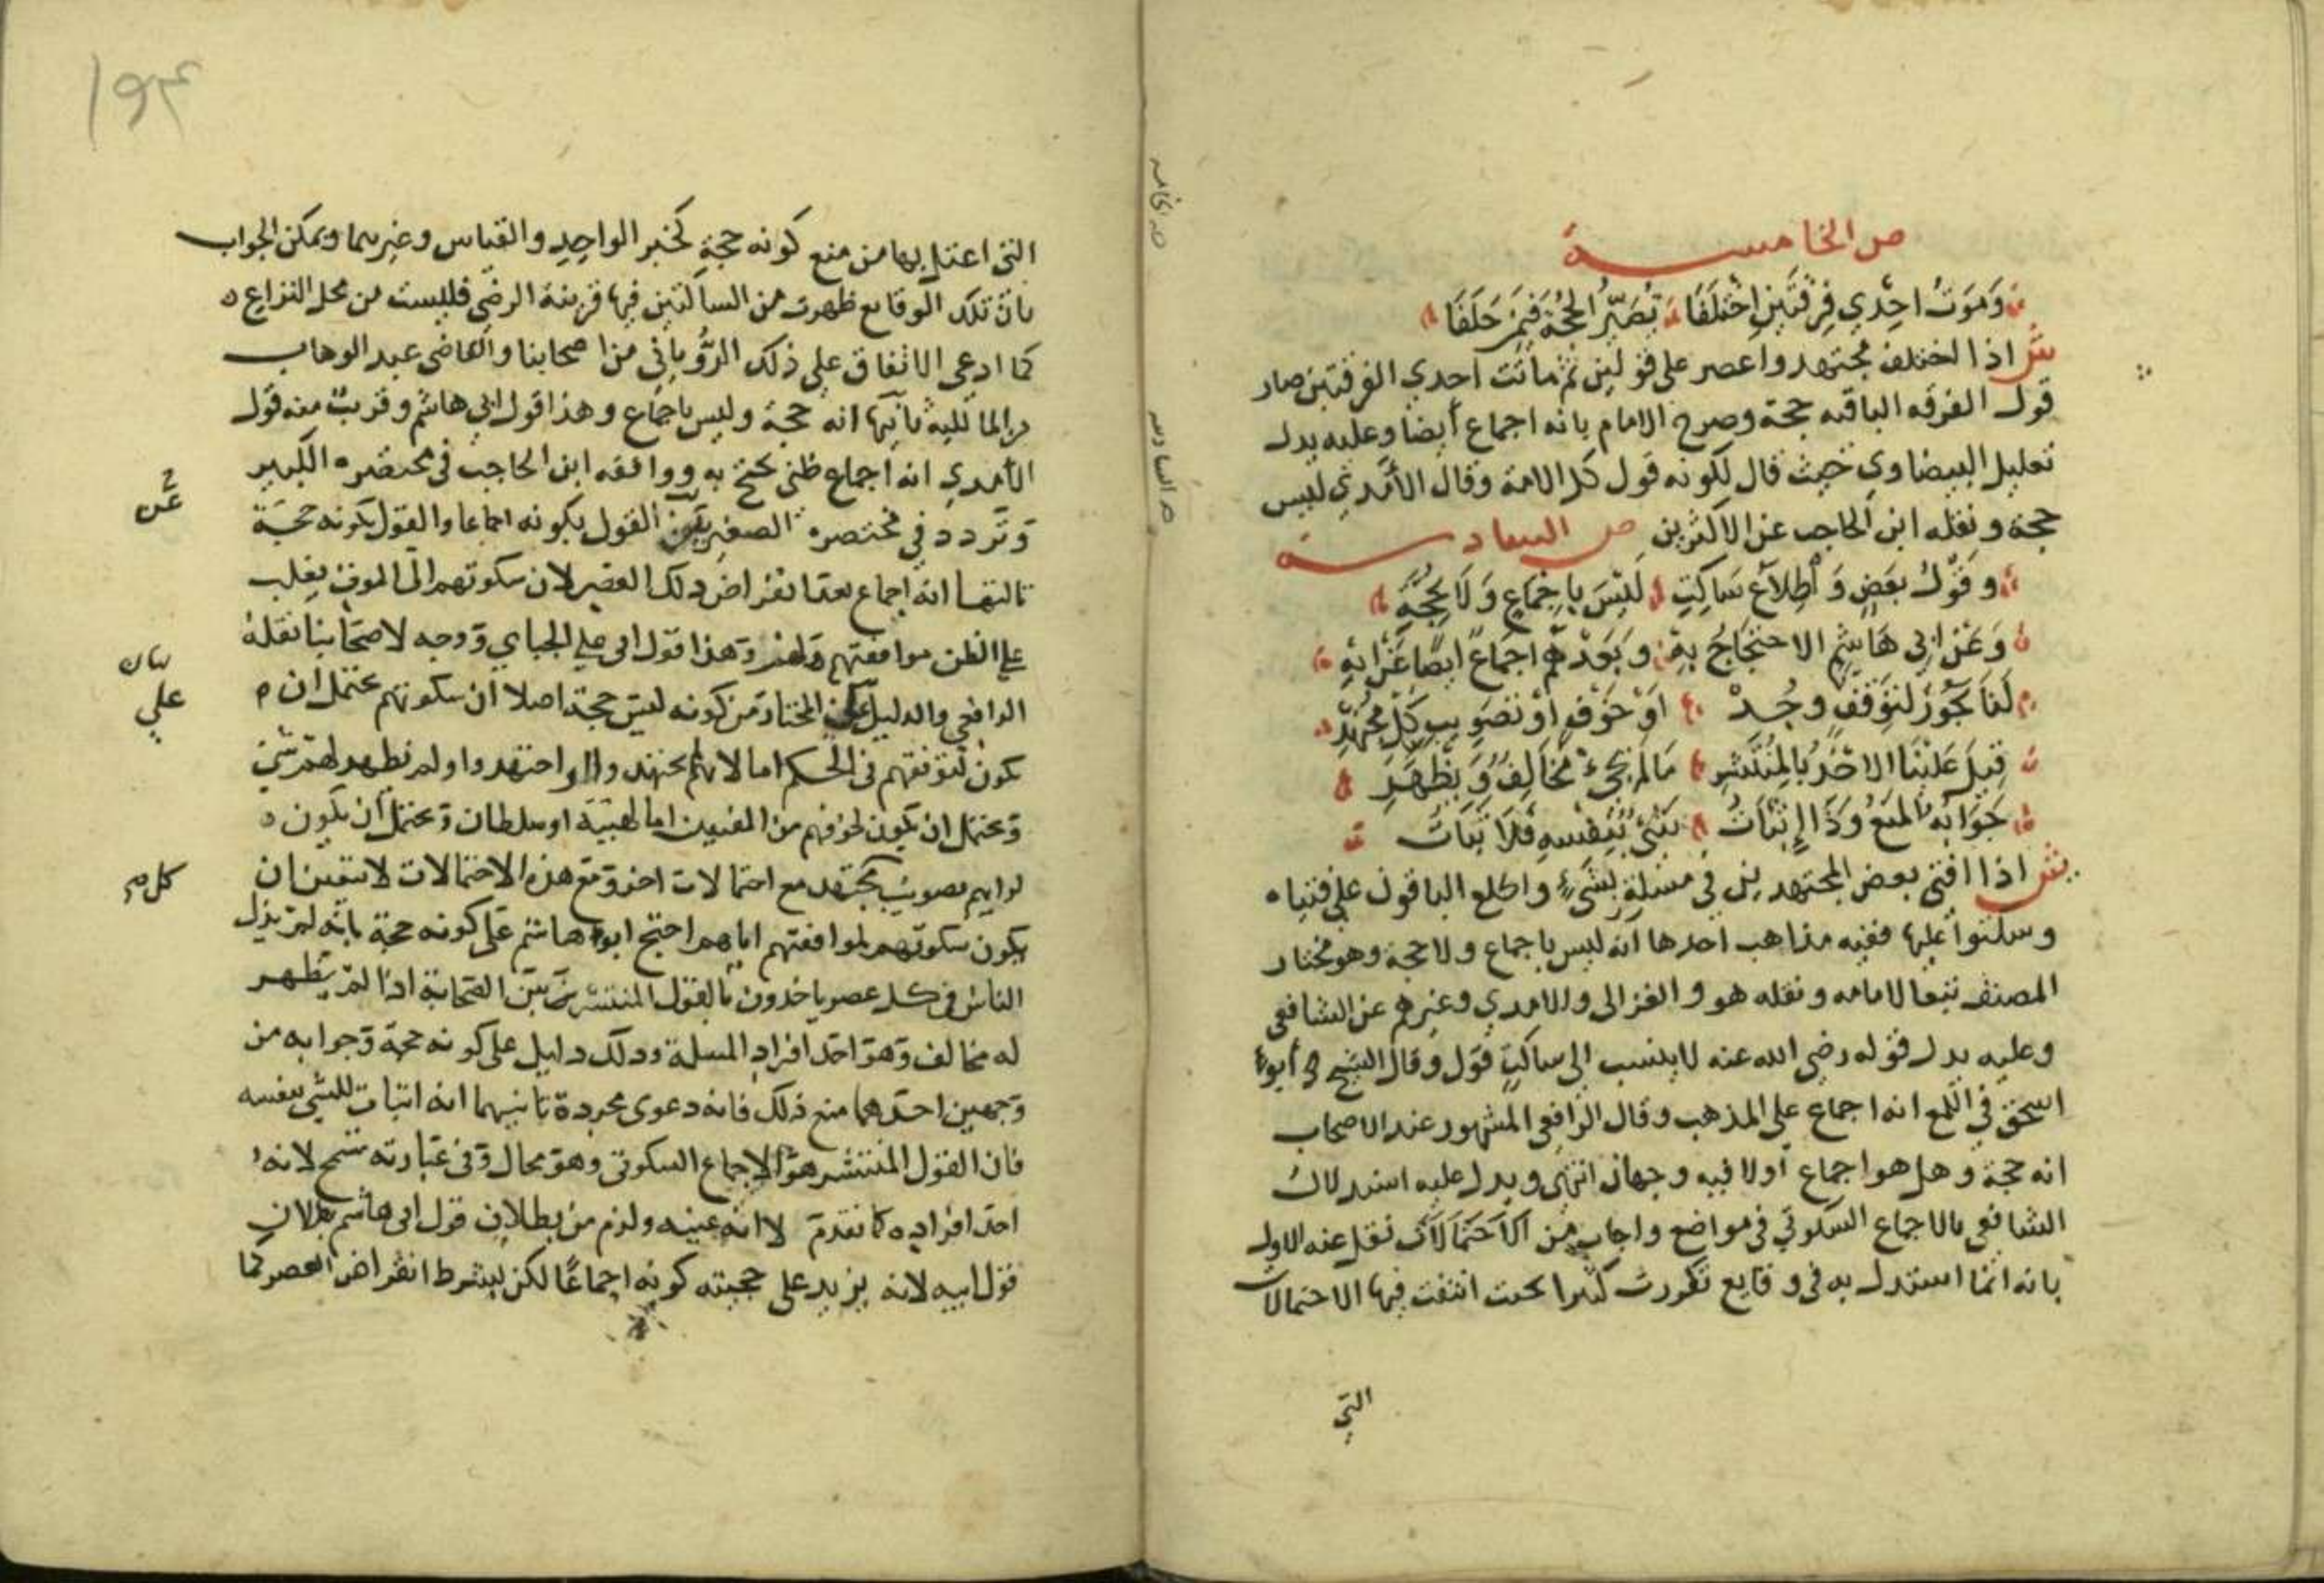 ص الخامسة
وَمَوتُ احِدي فِرقَتَينِ اخْتَلَفَا تُصَيِّرُ الحُجَّة فيمَن خَلَفَا
ش اذا اختلف مجتهدوا عصر على قولين ثم ماتت احدي الفرقتين صار
قول الفرقه الباقيه حجة وصرح الامام بانه اجماع أيضا وعليه يدل
تعليل البيضاوي حيث قال لكونه قول كل الامة وقال الأمدي ليس
حجة ونقله ابن الحاجب عن الاكثرين ص السادسة
وقَوْلُ بَعضٍ وَاطِلاَعُ سَاكِتٍ لَيْسَ بِاِجْمَاعٍ وَلَا بِحُجَّةِ
وَعَنْ ابِي هَاشِمٍ الاحْتِجَاجُ بِهْ وَبَعْدَهُم اجمَاعٌ ايضًا عَنْ ابِهِ
لَنَا يَجُوزُ لِتَوَقُّفٍ وُجِدْ اوْ خَوْفٍ اوْ تَصْوِيبِ كُلِّ مُجْتَهِدْ
قِيلَ عَلَيْنَا الاخْذُ بِالمُنْتَشِرِ مَا لَم يَجِيْ مُخَالِفٌ وَيَظْهَرِ
جَوَابُهُ المَنْعُ وَذَا إِثْبَاتُ شَيْءٍ بِنَفْسِهِ فَلَا ثَبَاتُ
ش اذا افتي بعض المجتهدين في مسئلة بشيء واطلع الباقون علي فتياه
وسكتوا عليها ففيه مذاهب احدها انه ليس باجماع ولا حجة وهو مختار
المصنف تبعا لامامه ونقله هو والغزالي والامدي وغيرهم عن الشافعي
وعليه يدل قوله رضي الله عنه لا ينسب الى ساكت قول وقال الشيخ أبو
اسحق في اللمع انه اجماع على المذهب وقال الرافعي المشهور عند الاصحاب
انه حجة وهل هو اجماع أولا فيه وجهان انتهى ويدل عليه استدلال
الشافعي بالاجماع السكوتي في مواضع واجاب من الاحتمالات نقل عنه الاول
بانه انما استدل به في وقايع تكررت كثيرا بحيث انتفت فيها الاحتمالات
التي
التي اعتل بها من منع كونه حجة كخبر الواحِدِ والقياس وغيرهما ويمكن الجواب
بان تلك الوقايع ظهرت من الساكتين فيها قرينة الرضي فليست من محل النزاع
كما ادعي الاتفاق علي ذلك الرُّويانِي من اصحابنا والقاضي عبد الوهاب
من المالكية ثانيها انه حجة وليس باجماع وهذا قول ابي هاشم وقريب منه قول
الأمدي انه اجماع ظني يحتج به ووافقه ابن الحاجب في مختصره الكبير
وتردد في مختصره الصغير بين القول بكونه اجماعا والقول بكونه حجة
ثالثها انه اجماع بعد انقراض ذلك العصر لان سكوتهم الى الموت يغلب
علي الظن موافقتهم وهذا قول ابي علي الجباي ووجه لاصحابنا نقله
الرافعي والدليل على المختار من كونه ليس حجة اصلا ان سكوتهم يحتمل ان
يكون لتوقفهم في الحكم اما لانهم لم يجتهدوا او اجتهدوا ولم يظهر لهم شي
ويحتمل ان يكون لخوفهم من المفتين اما لهيبة او سلطان ويحتمل ان يكون
لرايهم تصويب مجتهد مع احتمالات اخر ومع هذه الاحتمالات لا يتعين ان
يكون سكوتهم لموافقتهم اياهم احتج ابو هاشم على كونه حجة بانه لم يزل
الناس في كل عصر ياخذون بالقول المنتشر بين الصحابة اذا لم يظهر
له مخالف وهو احد افراد المسلة وذلك دليل على كونه حجة وجوابه من
وجهين احدهما منع ذلك فانه دعوى مجردة ثانيهما انه اثبات للشي بنفسه
فان القول المنتشر هو الاجماع السكوتي وهو محال وفي عبارته تسمح لانه
احد افراده كما تقدم لا انه عينه ولزم من بطلان قول ابي هاشم بطلان
قول ابيه لانه يزيد على حجيته كونه اجماعًا لكن بشرط انقراض العصر كما
بيان
علي
كل صح
ص الخامسه
ص السادسه